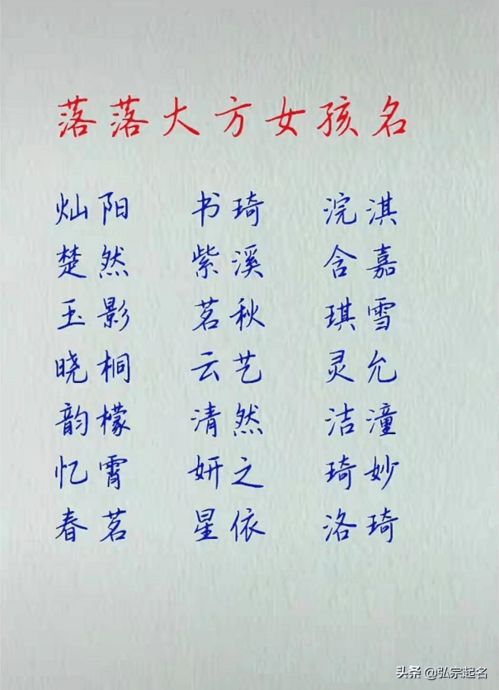 落落大方女孩名
灿阳 书琦 浣淇
楚然 紫溪 含嘉
玉影 茗秋 琪雪
晓桐 云艺 灵允
韵檬 清然 洁潼
忆霄 妍之 琦妙
春茗 星依 洛琦
头条 @弘宗起名